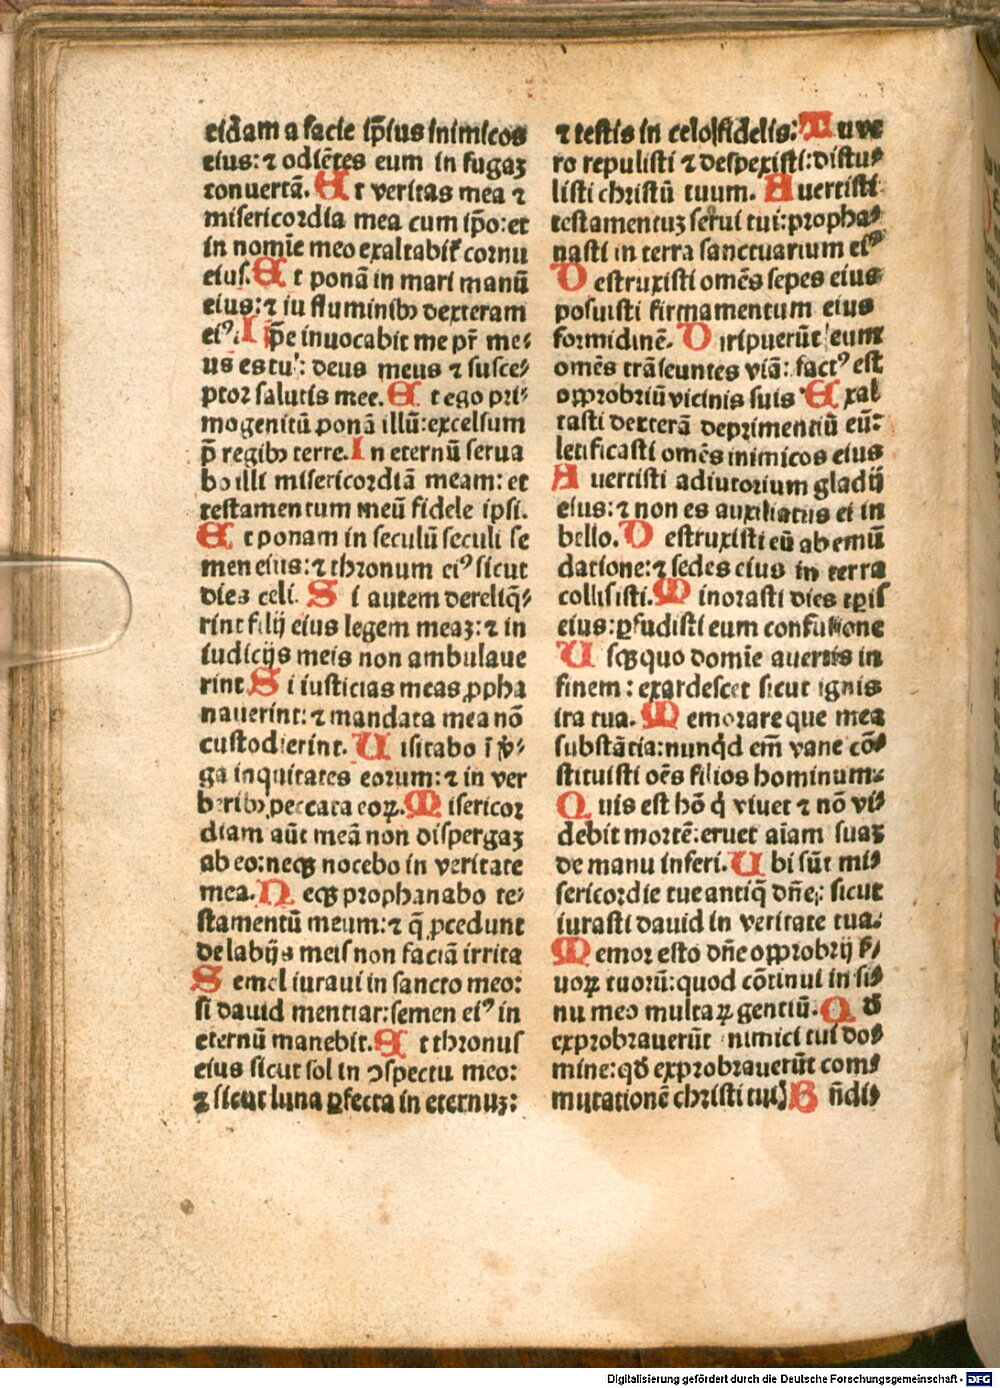 cidam a facie ip̄ius inimicos
eius: ⁊ odiētes eum in fugaʒ
conuertā. Et veritas mea ⁊
misericordia mea cum ip̄o: et
in nomīe meo exaltabiť cornu
eius. Et ponā in mari manū
eius: ⁊ iu fluminibꝫ dexteram
eiꝰ. Ip̄e inuocabit me pr̄ me⸗
us es tu: deus meus ⁊ susce⸗
ptor salutis mee. Et ego pri⸗
mogenitū ponā illū: excelsum
p̄ regibꝫ terre. In eternū serua
bo illi misericordiā meam: et
testamentum meū fidele ipsi.
Et ponam in seculū seculi se
men eius: ⁊ thronum eiꝰ sicut
dies celi. Si autem dereliq̄⸗
rint filij eius legem meaʒ: ⁊ in
iudicijs meis non ambulaue
rint. Si iusticias meas ꝓpha
nauerint: ⁊ mandata mea nō
custodierint. Uisitabo ī v̓⸗
ga inquitates eorum: ⁊ in ver
beribꝫ peccata eoꝝ. Misericor
diam aūt meā non dispergaʒ
ab eo: neqꝫ nocebo in veritate
mea. Neqꝫ prophanabo te⸗
stamentū meum: ⁊ q̄ ꝓcedunt
de labijs meis non faciā irrita
Semel iuraui in sancto meo:
si dauid mentiar: semen eiꝰ in
eternū manebit. Et thronus
eius sicut sol in ↄspectu meo:
⁊ sicut luna ꝑfecta in eternuʒ:
⁊ testis in celo fidelis. Tu ve
ro repulisti ⁊ despexisti: distu⸗
listi christū tuum. Auertisti
testamentuʒ serui tui: propha⸗
nasti in terra sanctuarium eiꝰ
Destruxisti omēs sepes eius
posuisti firmamentum eius
formidinē. Diripuerūt eum
omēs trāseuntes viā: factꝰ est
opprobriū vicinis suis Exal
tasti dexterā deprimentiū eū:
letificasti omēs inimicos eius
Auertisti adiutorium gladij
eius: ⁊ non es auxiliatus ei in
bello. Destruxisti eū ab emū
datione: ⁊ sedes eius in terra
collisisti. Minorasti dies tꝑis
eius: ꝑfudisti eum confusione
Usqꝫ quo domīe auertis in
finem: exardescet sicut ignis
ira tua. Memorare que mea
substātia: nunqd em̄ vane cō⸗
stituisti oēs filios hominum:
Quis est hō q̇ viuet ⁊ nō vi⸗
debit mortē: eruet aīam suaʒ
de manu inferi. Ubi sūt mi⸗
sericordie tue antiq̄ dn̄e: sicut
iurasti dauid in veritate tua.
Memor esto dn̄e opprobrij ẜ⸗
uoꝝ tuorū: quod cōtinui in si⸗
nu meo multaꝝ gentiū. Qđ
exprobrauerūt inimici tui do⸗
mine: qđ exprobrauerūt com⸗
mutationē christi tui Bn̄di⸗
Digitalisierung gefördert durch die Deutsche Forschungsgemeinschaft - DFG